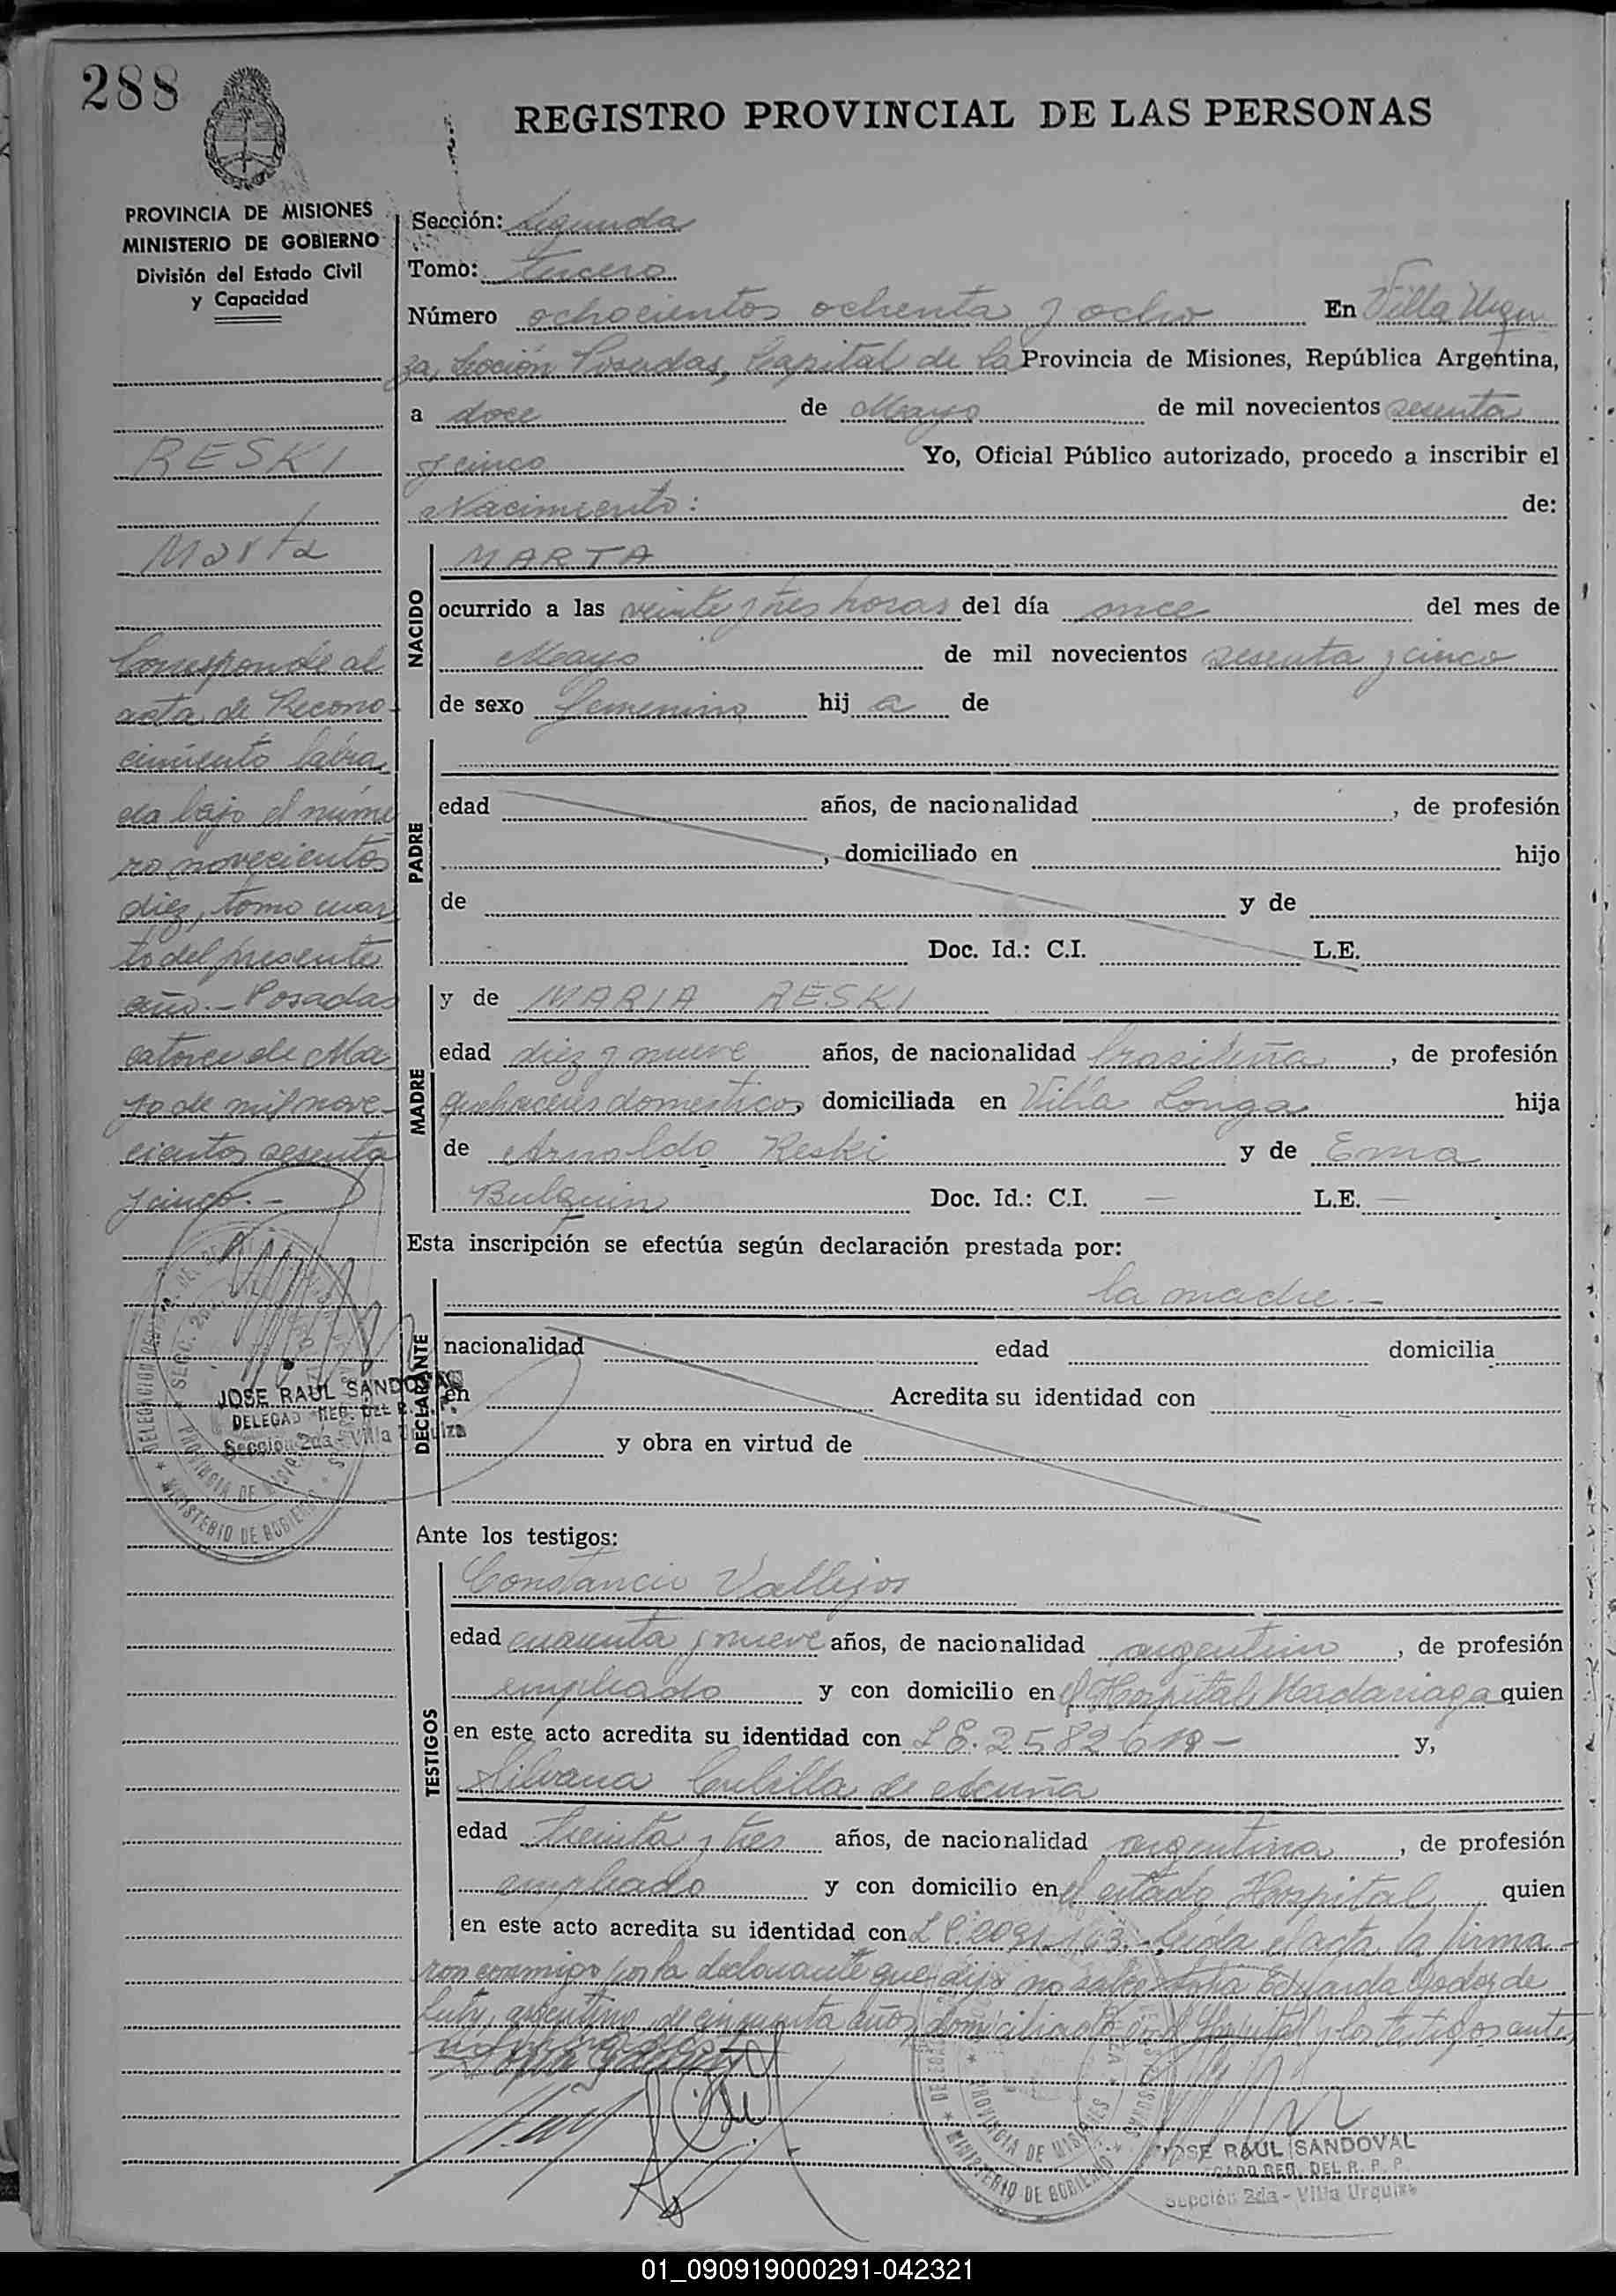 288
REGISTRO PROVINCIAL DE LAS PERSONAS
PROVINCIA DE MISIONES
MINISTERIO DE GOBIERNO
División del Estado Civil
y Capacidad
RESKI
Marta
Corresponde al
acta de Recono-
cimiento labra
da bajo el núme
ro novecientos
diez, tomo cuar
to del presente
año.- Posadas
catorce de Ma
yo de mil nove-
cientos sesenta
y cinco.-
JOSE RAUL SANDOVAL
DELEGADO REG. DEL R. P. P.
Sección 2da - Villa Urquiza
Sección: Segunda
Tomo: Tercero
Número ochocientos ochenta y ocho En Villa Urqui
za, Sección Posadas, Capital de la Provincia de Misiones, República Argentina,
a doce de Mayo de mil novecientos sesenta
y cinco Yo, Oficial Público autorizado, procedo a inscribir el
Nacimiento: de:
NACIDO
MARTA
ocurrido a las veinte y tres horas del día once del mes de
Mayo de mil novecientos sesenta y cinco
de sexo femenino hija de
PADRE
edad años, de nacionalidad , de profesión
, domiciliado en hijo
de y de
Doc. Id.: C.I. L.E.
MADRE
y de MARIA RESKI
edad diez y nueve años, de nacionalidad brasileña , de profesión
quehaceres domesticos domiciliada en Villa Longa hija
de Arnoldo Reski y de Ema
Bulquin Doc. Id.: C.I. — L.E. —
Esta inscripción se efectúa según declaración prestada por:
DECLARANTE
la madre.-
nacionalidad edad domicilia
en Acredita su identidad con
y obra en virtud de
Ante los testigos:
TESTIGOS
Constancio Vallejos
edad cuarenta y nueve años, de nacionalidad argentino , de profesión
empleado y con domicilio en el Hospital Madariaga quien
en este acto acredita su identidad con L.E. 2582618- y,
Silvana Cubilla de Acuña
edad treinta y tres años, de nacionalidad argentina , de profesión
empleado y con domicilio en el citado Hospital quien
en este acto acredita su identidad con L.C. 2091163.- Leída el acta, la firma-
ron conmigo por la declarante que dijo no saber Sofía Eduarda Godoy de
argentina, de cincuenta años, domiciliada en el Hospital y los testigos ante
JOSE RAUL SANDOVAL
REG. DEL R. P. P.
Sección 2da - Villa Urquiza
PROVINCIA DE MISIONES
MINISTERIO DE GOBIERNO
01_090919000291-042321